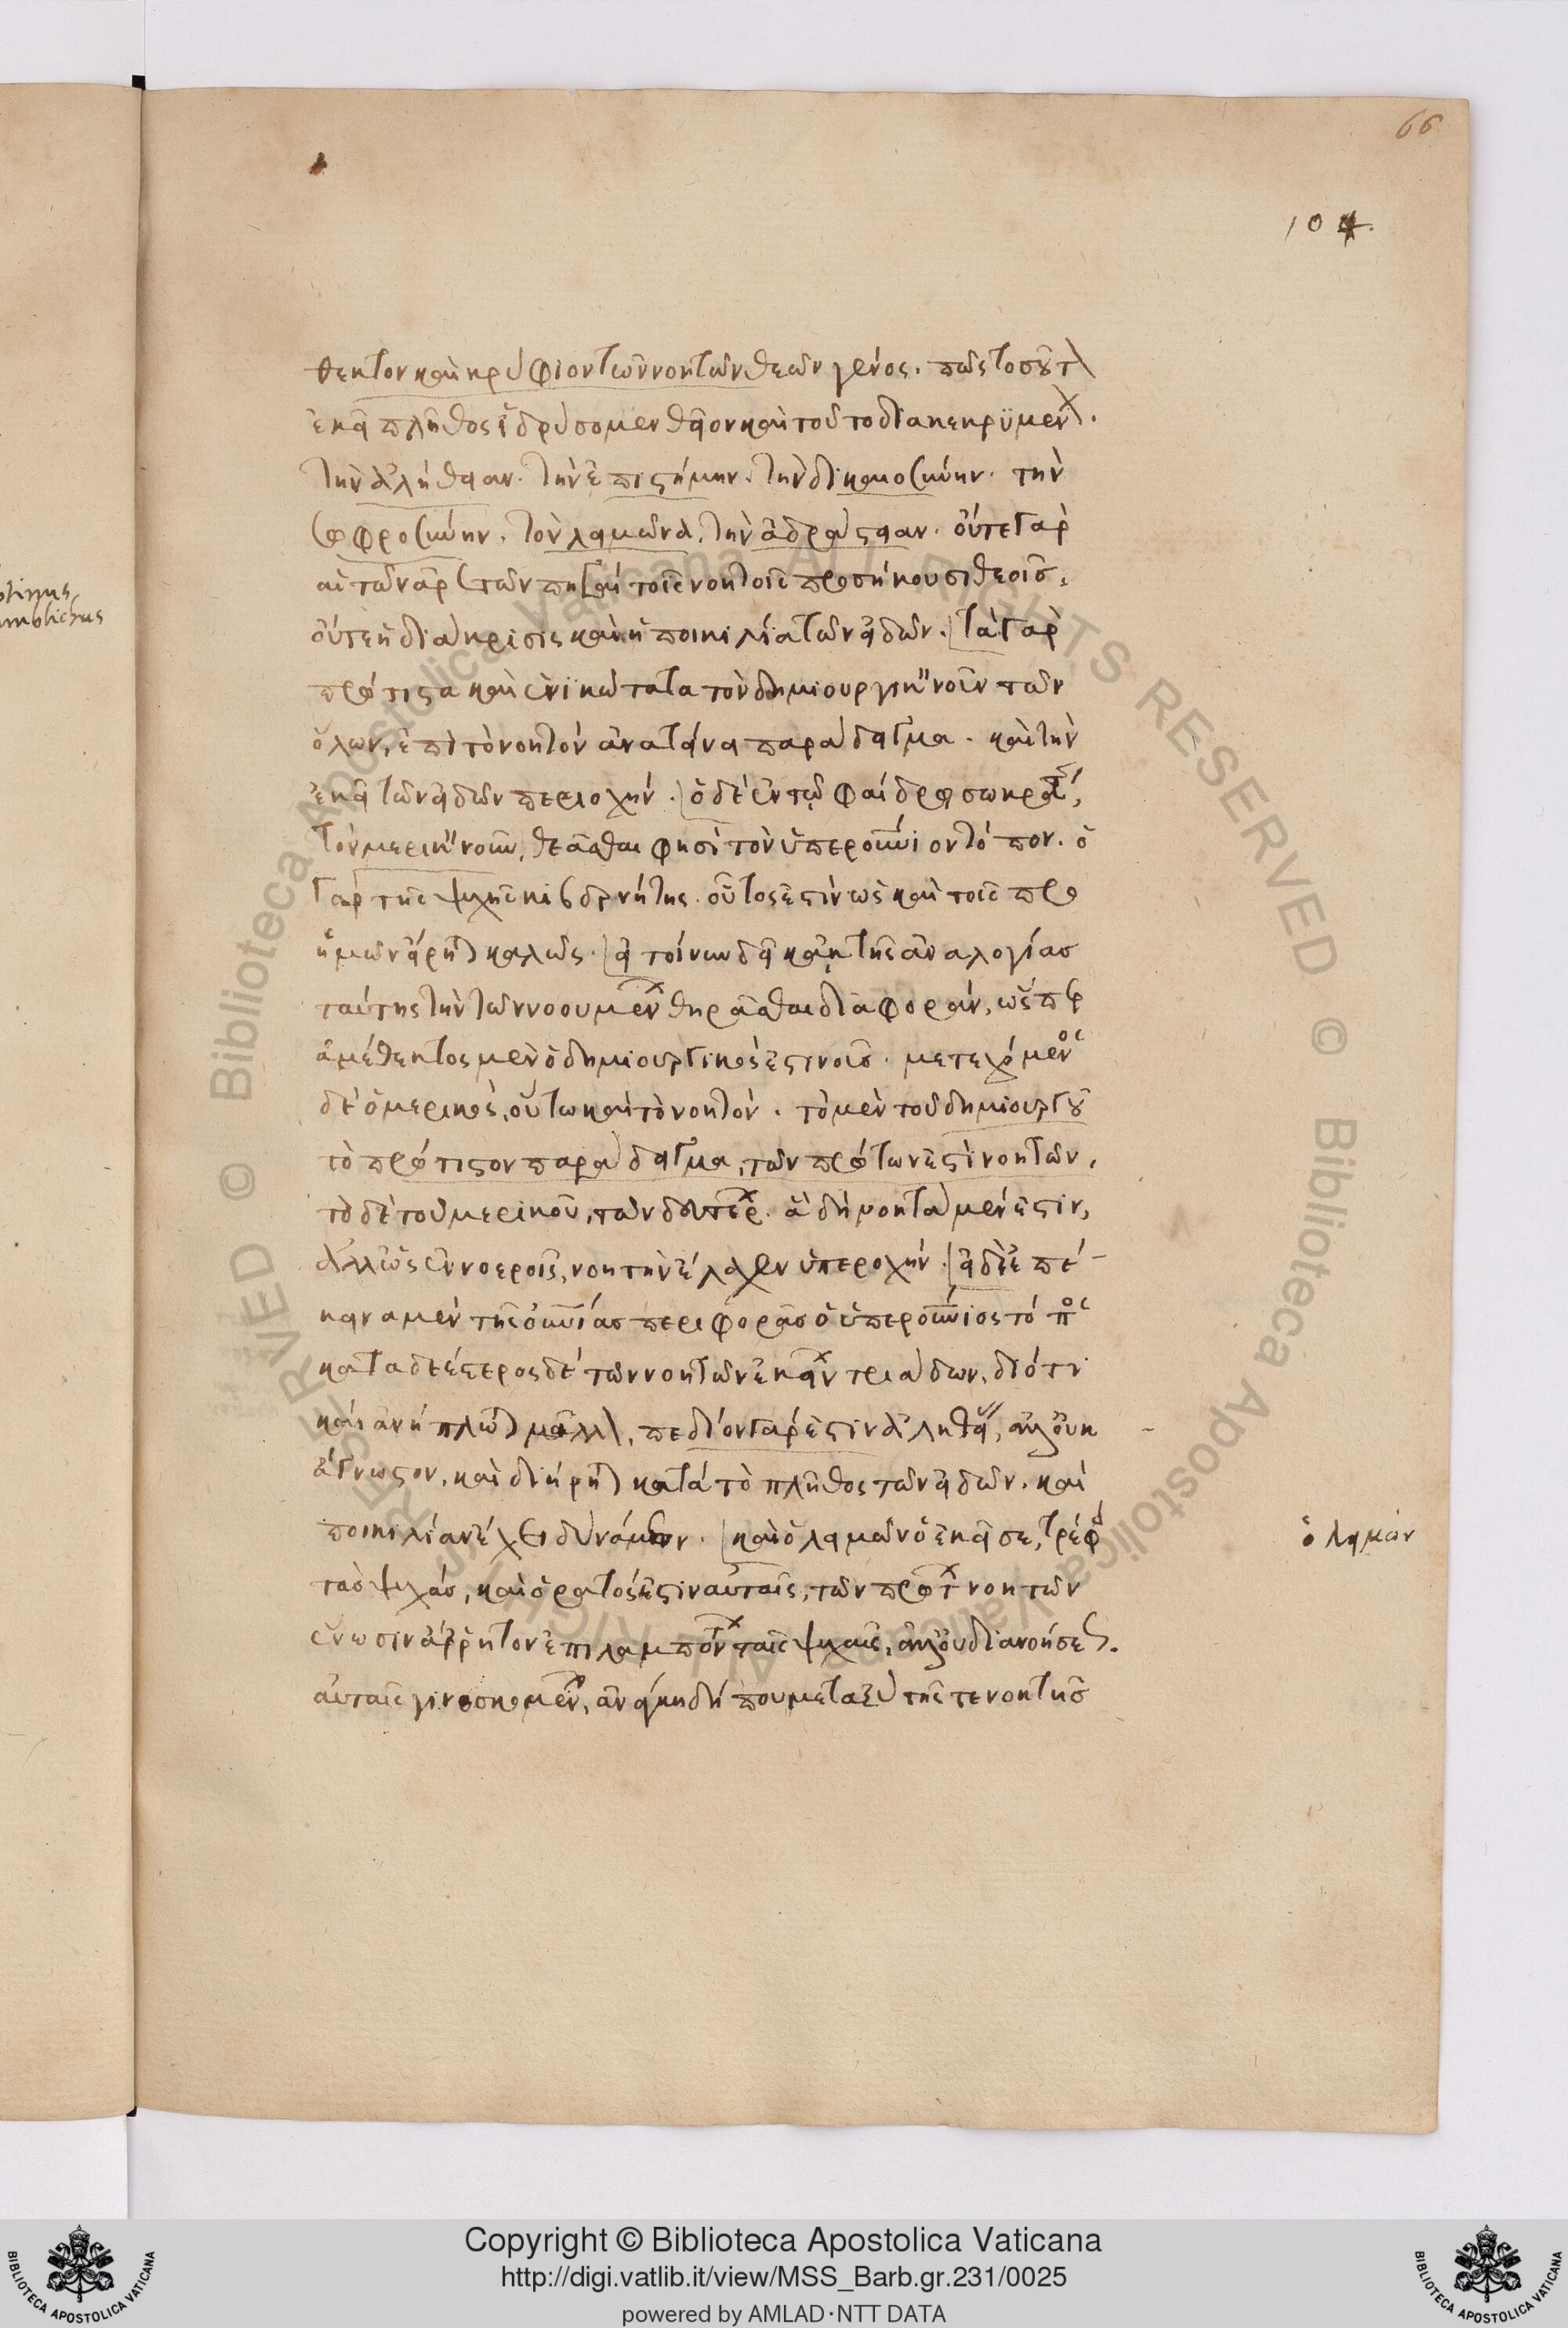 66
104.
θεκτον καὶ κρύφιον τῶν νοητῶν θεῶν γένος. πῶς τοσοῦτ
ἐκεῖ πλῆθος ἱδρύσομεν θεῖον καὶ τοῦτο διακεκριμέν.
τὴν ἀλήθειαν. τὴν ἐπιστήμην. τὴν δικαιοσύνην. τὴν
σωφροσύνην. τὸν λειμῶνα. τὴν ἀδράστειαν. οὔτε γὰρ
αἱ τῶν ἀρετῶν πηγαὶ τοῖς νοητοῖς προσήκουσι θεοῖς,
οὔτε ἡ διάκρισις καὶ ἡ ποικιλία τῶν εἰδῶν. τὰ γὰρ
πρώτιστα καὶ ἑνικώτατα τὸν δημιουργικ νοῦν τῶν
ὅλων, ἐπὶ τὸ νοητὸν ἀνατείνει παράδειγμα. καὶ τὴν
ἐκεῖ τῶν εἰδῶν περιοχήν. ὁ δὲ ἐν τῷ φαίδρῳ σωκράτ,
τὸν μερικ νοῦν, θεᾶσθαι φησὶ τὸν ὑπερουνιον τόπον. ὁ
γὰρ τῆς ψυχῆς κυβερνήτης οὗτος ἐστὶν ὡς καὶ τοῖς πρὸ
ἡμῶν εἴρητ καλῶς. εἰ τοίνυν δεῖ κἀκ τῆς ἀναλογίας
ταύτης τὴν τῶν νοουμέν θηρᾶσθαι διαφοράν, ὥσπερ
ἀμέθεκτος μὲν ὁ δημιουργικός ἐστι νοῦς. μετεχόμενος
δὲ ὁ μερικὸς, οὕτω καὶ τὸ νοητόν. τὸ μὲν τοῦ δημιουργοῦ
τὸ πρώτιστον παράδειγμα, τῶν πρώτων ἐστὶ νοητῶν,
τὸ δὲ τοῦ μερικοῦ, τῶν δευτέρ. ἃ δὴ νοητὰ μέν ἐστιν,
ἀλλ' ὡς ἐν νοεροῖς, νοητὴν ἔλαχεν ὑπεροχήν. εἰ δὲ ἐπέ-
κεινα μὲν τῆς οὐνίας περιφορᾶς ὁ ὑπερουνιος τόπος
καταδεέστερος δὲ τῶν νοητῶν ἐκείν τριάδων, διότι
καὶ ἀνήπλωτ μᾶλλ, πεδίον γάρ ἐστιν ἀληθεί, ἀλλ' οὐκ
ἄγνωστον. καὶ διῄρητ κατὰ τὸ πλῆθος τῶν εἰδῶν. καὶ
ποικιλίαν ἔχει δυνάμεων. καὶ ὁ λειμὼν ὁ ἐκεῖσε, τρέφ
τὰς ψυχάς, καὶ ὁρατός ἐστιν αὐταῖς, τῶν πρώτ νοητῶν
ἕνωσιν ἄρρητον ἐπιλαμπόντ ταῖς ψυχαῖς, ἀλλ' οὐ διανοήσεσ.
αὐταῖς γινωσκομέν, ἀνάγκη δή που μεταξὺ τῆς τε νοητῆς
ὁ λειμών
Copyright © Biblioteca Apostolica Vaticana
http://digi.vatlib.it/view/MSS_Barb.gr.231/0025
powered by AMLAD·NTT DATA